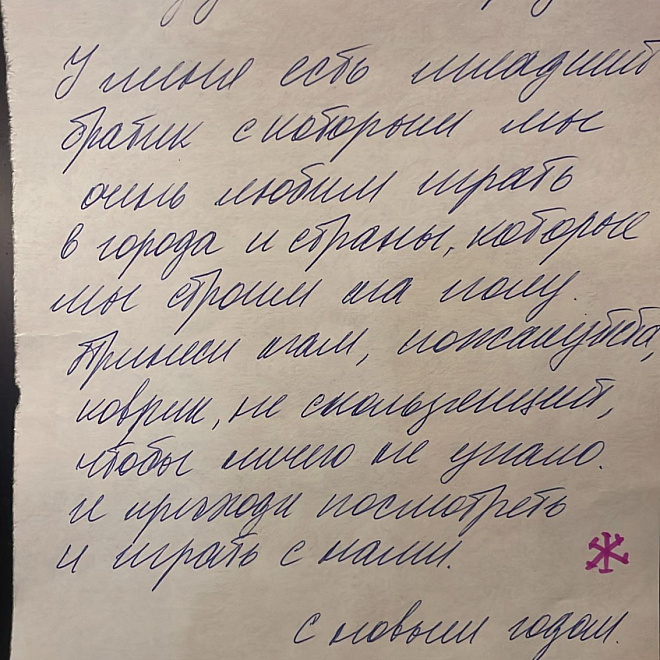 У меня есть младший
братик с которым мы
очень любим играть
в города и страны, которые
мы строим на полу.
Принеси нам, пожалуйста,
коврик, не скользящий,
чтобы ничего не упало.
и приходи посмотреть
и играть с нами.
с новым годом.